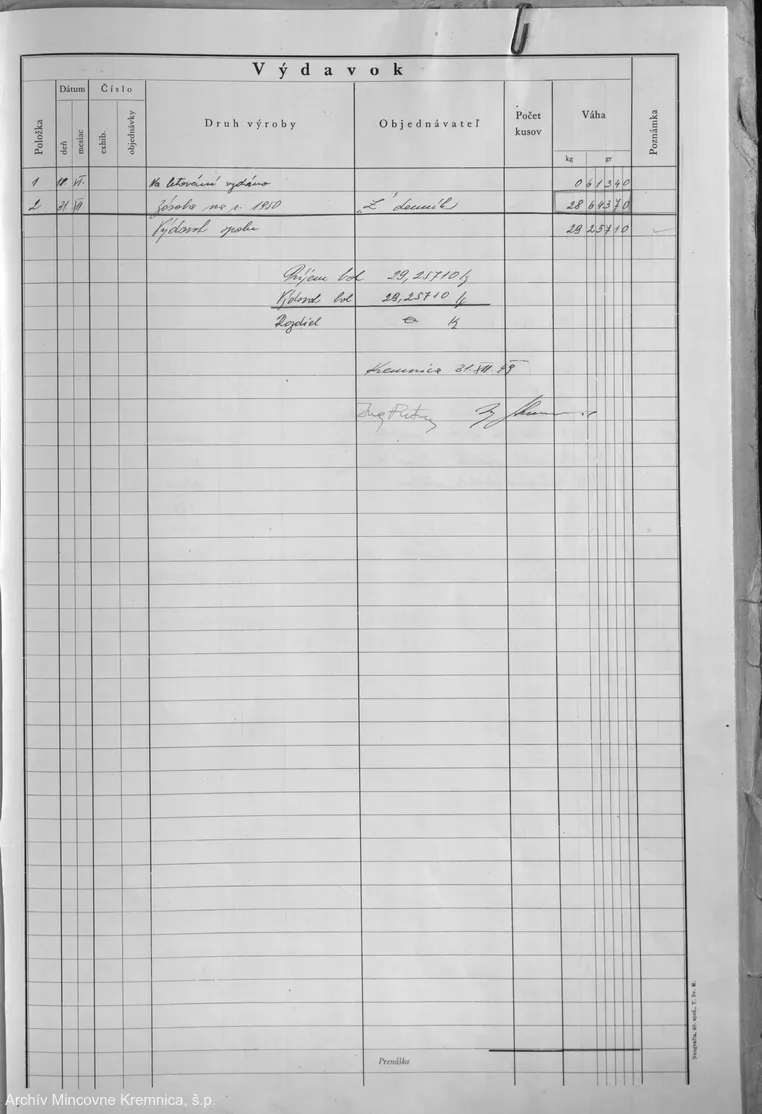 Výdavok
Položka
Dátum
deň
mesiac
Číslo
exhib.
objednávky
Druh výroby
Objednávateľ
Počet kusov
Váha
kg gr
Poznámka
1 18. VI. Na letování vydáno 0 61340
2 31. XII Zásoba na r. 1950 "Z" denník 28 64370
Výdavok spolu 29 25710
Príjem bol 29,25710 kg
Výdavok bol 29,25710 kg
Rozdiel kg
Kremnica 31. XII. 49
Prenáška
Neografia, úč. spol., T. Sv. M.
Archív Mincovne Kremnica, š.p.